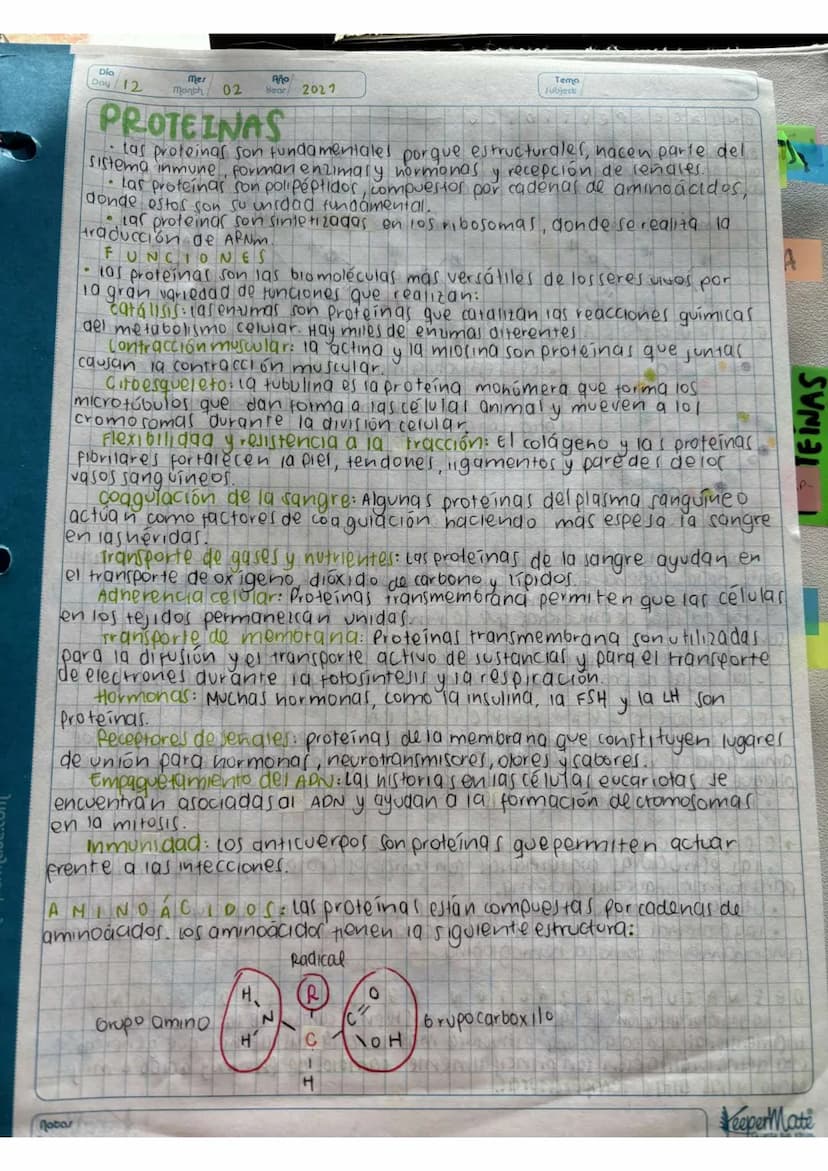 Día Mes Año Tema
Day / 12 Month / 02 Year / 2021 Subject
PROTEINAS
• Las proteínas son fundamentales porque estructurales, hacen parte del
sistema inmune, forman enzimas y hormonas y recepción de señales.
• Las proteínas son polipéptidos, compuestos por cadenas de aminoácidos,
donde estos son su unidad fundamental.
• Las proteínas son sintetizadas en los ribosomas, donde se realiza la
traducción de ARNm.
FUNCIONES
• Las proteínas son las biomoléculas más versátiles de los seres vivos por
la gran variedad de funciones que realizan:
Catálisis: las enzimas son proteínas que catalizan las reacciones químicas
del metabolismo celular. Hay miles de enzimas diferentes.
Contracción muscular: la actina y la miosina son proteínas que juntas
causan la contracción muscular.
Citoesqueleto: la tubulina es la proteína monómera que forma los
microtúbulos que dan forma a las células animal y mueven a los
cromosomas durante la división celular.
Flexibilidad y resistencia a la tracción: El colágeno y las proteínas
fibrilares fortalecen la piel, tendones, ligamentos y paredes de los
vasos sanguíneos.
Coagulación de la sangre: Algunas proteínas del plasma sanguíneo
actúan como factores de coagulación haciendo más espesa la sangre
en las heridas.
Transporte de gases y nutrientes: Las proteínas de la sangre ayudan en
el transporte de oxígeno, dióxido de carbono y lípidos.
Adherencia celular: Proteínas transmembrana permiten que las células
en los tejidos permanezcan unidas.
Transporte de membrana: Proteínas transmembrana son utilizadas
para la difusión y el transporte activo de sustancias y para el transporte
de electrones durante la fotosíntesis y la respiración.
Hormonas: Muchas hormonas, como la insulina, la FSH y la LH son
proteínas.
Receptores de señales: proteínas de la membrana que constituyen lugares
de unión para hormonas, neurotransmisores, olores y sabores.
Empaquetamiento del ADN: Las historias en las células eucariotas se
encuentran asociadas al ADN y ayudan a la formación de cromosomas
en la mitosis.
Inmunidad: Los anticuerpos son proteínas que permiten actuar
frente a las infecciones.
AMINOÁCIDOS: Las proteínas están compuestas por cadenas de
aminoácidos. Los aminoácidos tienen la siguiente estructura:
Radical
H R O
Grupo amino N C Grupo carboxilo
H C OH
H
Notas
KeeperMate
TEÍNAS
A